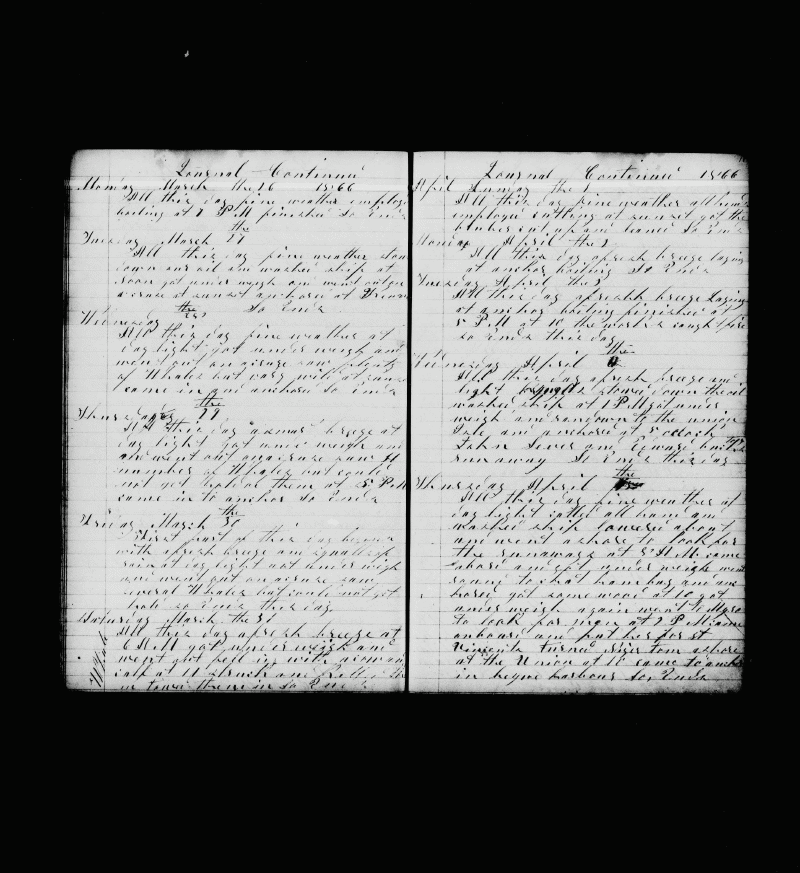 Journal Continued
Monday March the 26 1866
All this day fine weather employed
boiling at 7 P M finished So Ends
the
Tuesday March 27
All this day fine weather stow
down our oil and washed ship at
noon got under weigh and went out
a cruse at sunset anchord at
the
Wednesday 28 So Ends
All this day fine weather at
day light got under weigh and
went out on a cruse saw plenty
of Whales but very wild at sunset
came in and anchord So Ends
the
Thursday 29
All this day a breeze at
day light got under weigh and
and went out on a cruse saw a
number of Whales but could
not get hold of them at 5 P M
came in to anchor So Ends
the
Friday March 30
First part of this day begins
with a fresh breeze and squalls of
rain at day light got under weigh
and went out on a cruse saw
several Whales but could not get
hold So Ends this day
Saturday March the 31
All this day a fresh breeze at
6 A M got under weigh and
went out fell in with a cow and
calf at 11 struck and
towed them in So Ends
1 Whale
Journal Continued 1866
April Sunday the 1
All this day fine weather all hands
employd cutting at sunset got the
blubber cut up and So Ends
Monday April the 2
All this day a fresh breeze laying
at anchor boiling So Ends
Tuesday April the 3
All this day a fresh breeze Laying
at anchor boiling finished at
5 P M at 10 the works caught fire
so Ends this day
the
Wednesday April 4
All this day a fresh breeze and
light squalls stowed down the oil
washed ship at 1 P M got under
weigh and run down to the union
Isle and anchord at 5 oclock
John and Edward
run away So Ends this day
the
Thursday April
All this day fine weather at
day light called all hands and
washed ship lowered a boat
and went ashore to look for
the runaways at 5 A M came
abord and got under weigh went
and
bored got some wood at 10 got
under weigh again went to
to look for men at 2 P M came
onboard and put her for St
Vincents turned ashore
at the Union at 10 came to anchor
in harbour So Ends